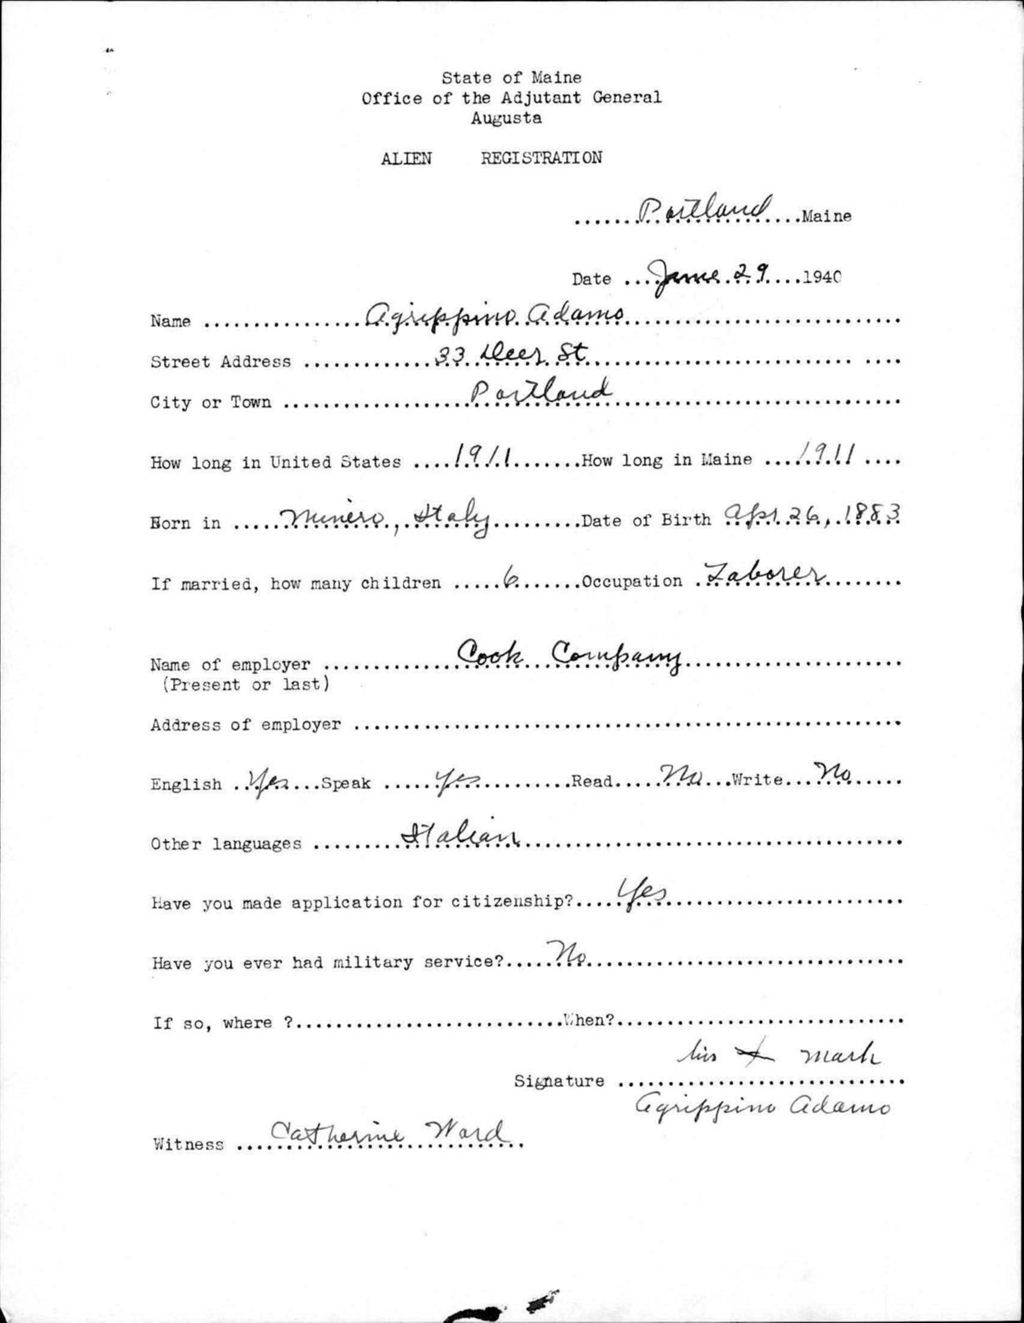 State of Maine
Office of the Adjutant General
Augusta
ALIEN REGISTRATION
......Portland....Maine
Date ....June 29....1940
Name ................Agrippino Adamo............................
Street Address .............33 Deer St.............................. ....
City or Town ...................Portland................................
How long in United States ....1911.......How long in Maine ....1911 ....
Born in .....Minero, Italy.........Date of Birth Apr 26, 1883
If married, how many children .....6......Occupation .Laborer........
Name of employer .............Cook Company......................
(Present or last)
Address of employer .......................................................
English ..Yes...Speak .....yes.........Read.....No...Write...No.....
Other languages .........Italian......................................
Have you made application for citizenship?.....Yes........................
Have you ever had military service?.....No................................
If so, where ?...........................When?.............................
his X mark
Signature .............................
Agrippino Adamo
Witness ....Catherine Ward..